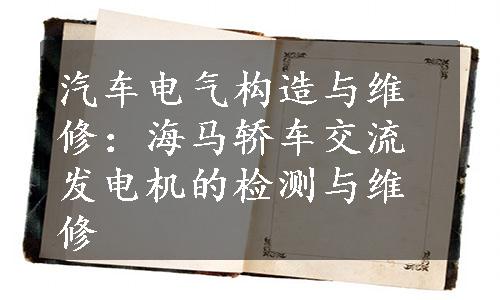 汽车电气构造与维
修：海马轿车交流
发电机的检测与维
修